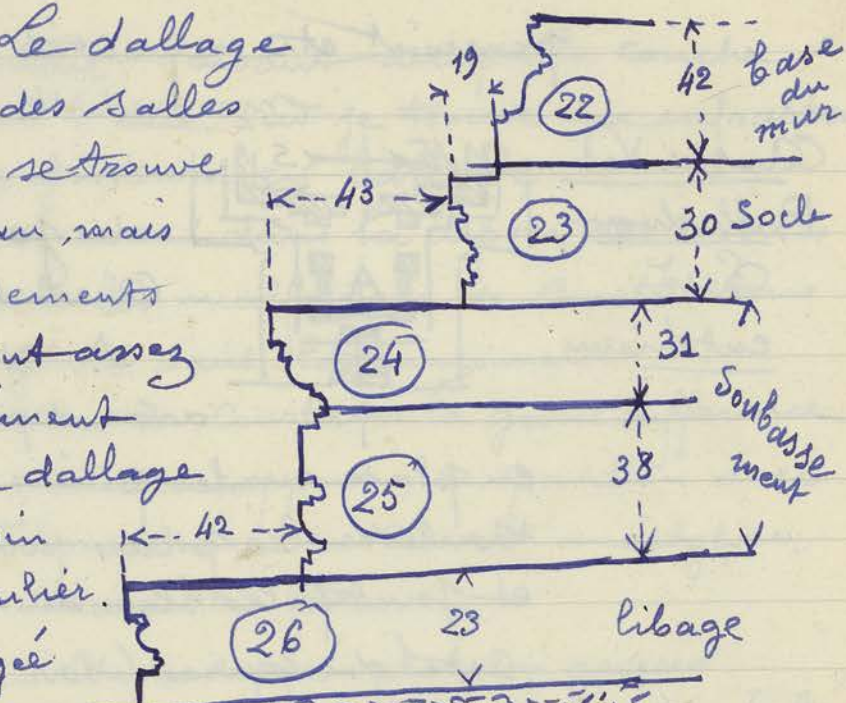 Le dallage
des salles
se trouve
mais
ements
assez
ment
dallage
in
ulier.
19
22
42
base
du
mur
43
23
30 Socle
24
31
25
38
Soubasse
ment
42
26
23
libage